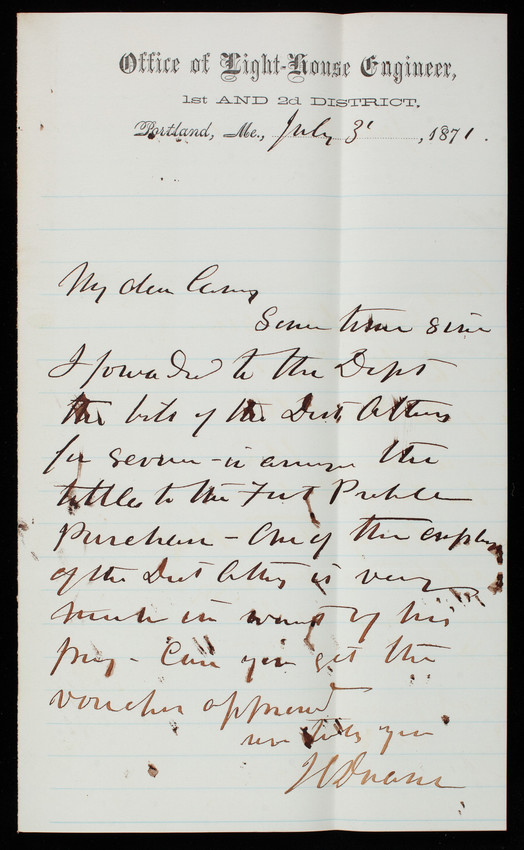 Office of Light-House Engineer,
1st AND 2d DISTRICT.
Portland, Me., July 3 , 1871.
My dear Casey
Some time since
I forwarded to the Dept
the bills of the Dist. Attorney
for services in the
titles to the Fort Preble
Purchase - One of the employees
of the Dist Atty is very
much in want of his
pay - Can you get the
voucher approved
yours truly
J C Duane